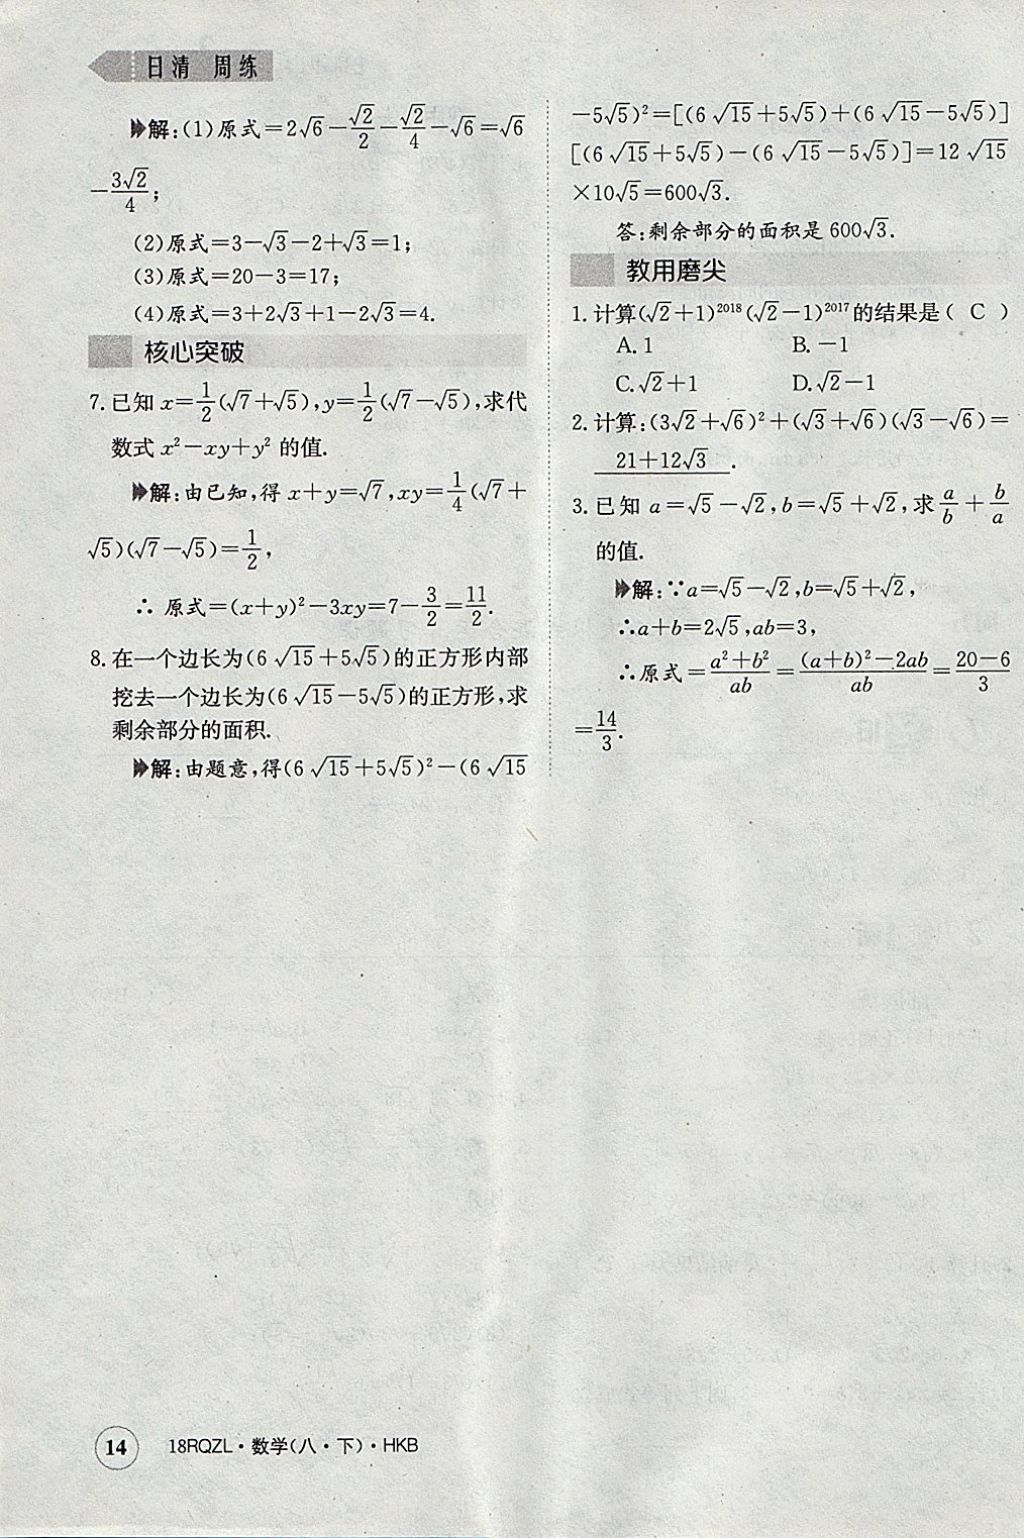 日清 周练
解:(1)原式=2√6-√2/2-√2/4-√6=√6
-3√2/4;
(2)原式=3-√3-2+√3=1;
(3)原式=20-3=17;
(4)原式=3+2√3+1-2√3=4.
核心突破
7. 已知 x=1/2(√7+√5),y=1/2(√7-√5),求代
数式 x²-xy+y² 的值.
解:由已知,得 x+y=√7,xy=1/4(√7+
√5)(√7-√5)=1/2,
∴ 原式=(x+y)²-3xy=7-3/2=11/2.
8. 在一个边长为(6√15+5√5)的正方形内部
挖去一个边长为(6√15-5√5)的正方形,求
剩余部分的面积.
解:由题意,得(6√15+5√5)²-(6√15
-5√5)²=[(6√15+5√5)+(6√15-5√5)]
[(6√15+5√5)-(6√15-5√5)]=12√15
×10√5=600√3.
答:剩余部分的面积是 600√3.
教用磨尖
1. 计算(√2+1)²⁰¹⁸(√2-1)²⁰¹⁷的结果是( C )
A. 1 B. -1
C. √2+1 D. √2-1
2. 计算:(3√2+√6)²+(√3+√6)(√3-√6)=
21+12√3.
3. 已知 a=√5-√2,b=√5+√2,求 a/b+b/a
的值.
解:∵a=√5-√2,b=√5+√2,
∴a+b=2√5,ab=3,
∴原式=(a²+b²)/ab=((a+b)²-2ab)/ab=(20-6)/3
=14/3.
14 18RQZL·数学(八·下)·HKB